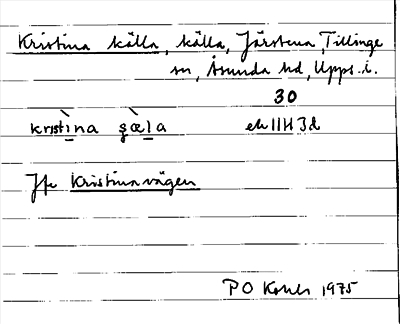 Kristina källa, källa, Järstena, Tillinge
sn, Åsunda hd, Upps. l.
30
kristìna ʂæ̀la ek 11H 3d
Jfr Kristinavägen
PO 1975